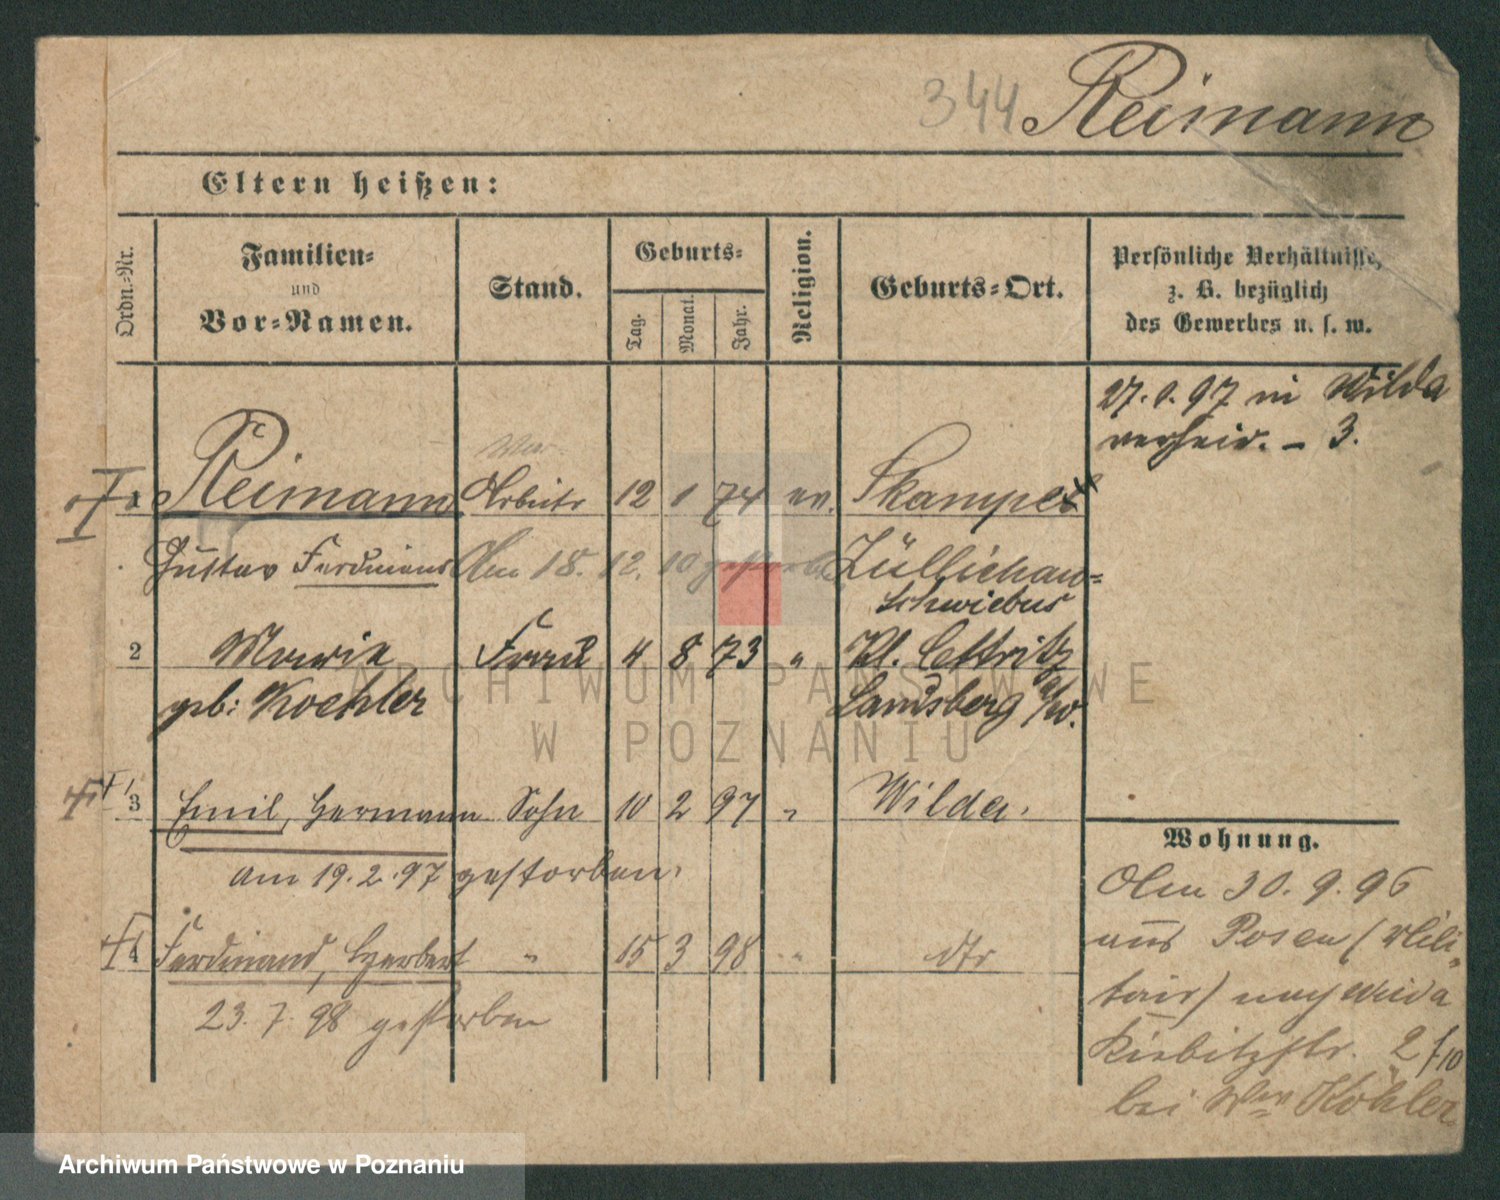 344 Reimann
Eltern heißen:
Ordn.-Nr.
Familien- und Vor-Namen.
Stand.
Geburts-
Tag. Monat. Jahr.
Religion.
Geburts-Ort.
Persönliche Verhältnisse,
z. B. bezüglich
des Gewerbes u. s. w.
27. 1. 97 in Wilda
verheir. - 3.
1 Reimann Arbeiter 12 1 74 ev. Skampe
Gustav Ferdinand Am 18. 12. 10 gestorben Züllichau-
Schwiebus
2 Marie Frau 4 8 73 " Kl. Cettritz
geb: Koehler Landsberg a/W.
3 Emil, Hermann Sohn 10 2 97 " Wilda.
am 19. 2. 97 gestorben.
4 Ferdinand, Herbert " 15 3 98 " dto
23. 7. 98 gestorben
Wohnung.
Am 30. 9. 96
aus Posen (Mili-
tair) nach Wilda
Kiebitzstr. 2 f/10
bei Köhler
ARCHIWUM PAŃSTWOWE
W POZNANIU
Archiwum Państwowe w Poznaniu